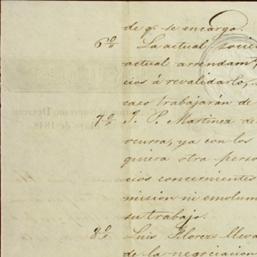 de q. se encargo.
6º La actual Socie
actual arrendam
cios á revalidarlo,
caso trabajarán de
7º J. P. Martinez de
rcurra, ya con los
quiera otra perso
cios concernientes
mision ni emolum
su trabajo.
8º Luis Flores
de la negociacion